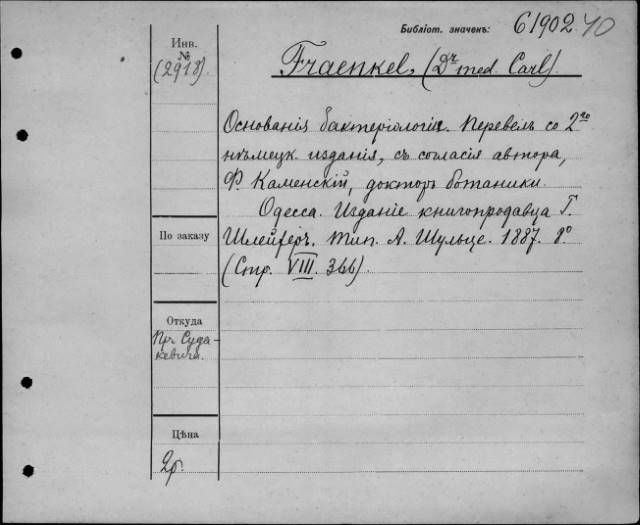 Библіот. значенъ: 61902.40
Инв.
№
(2918).
Fraenkel, (Dr med. Carl).
Основанія бактеріологіи. Перевелъ со 2го
нѣмецк. изданія, съ согласія автора,
Ф. Каменскій, докторъ ботаники.
Одесса. Изданіе книгопродавца Г.
Шлейферъ. Тип. А. Шульце. 1887. 8º
(Стр. VIII. 366).
По заказу
Откуда
Суда-
кевича.
Цѣна
2р.